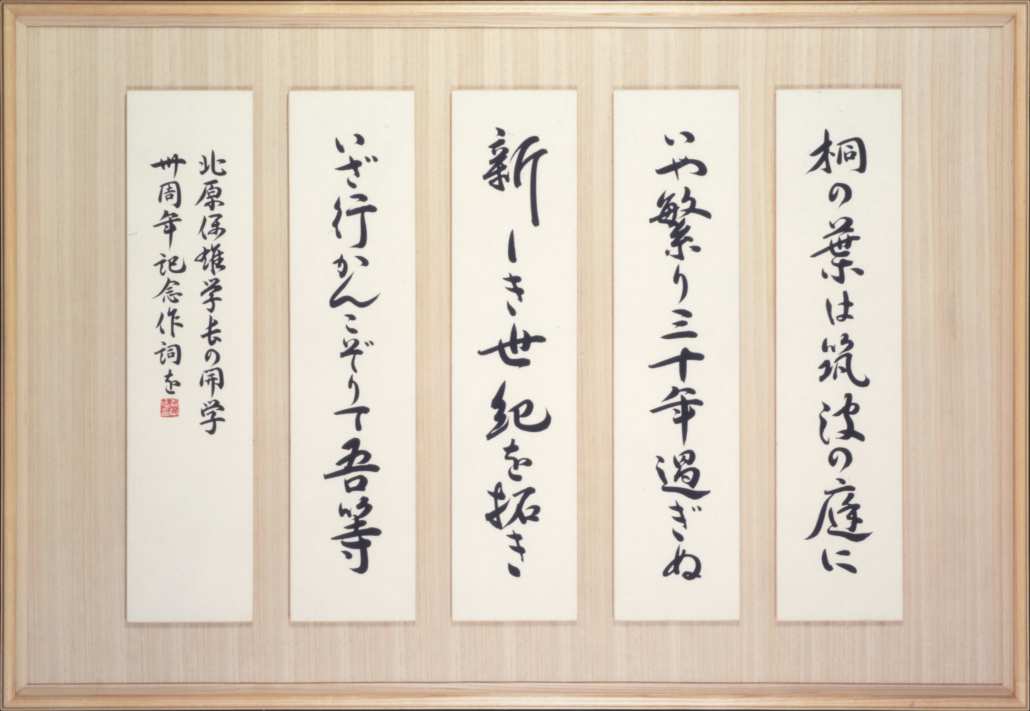 桐の葉は筑波の庭に
いや繁り三十年過ぎぬ
新しき世紀を拓き
いざ行かんこぞりて吾等
北原保雄学長の開学
卅周年記念作詞を